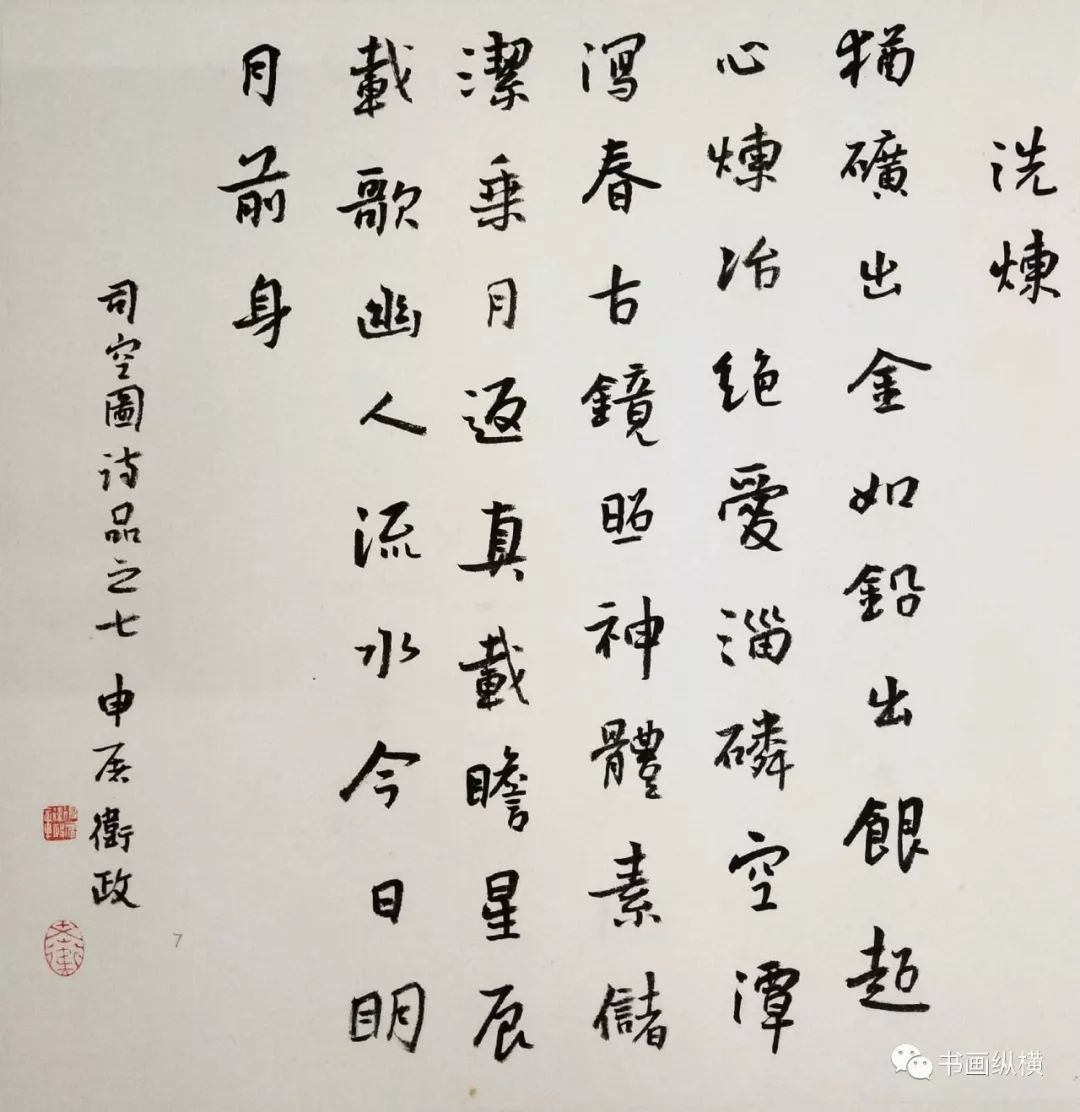 洗煉
猶礦出金如鉛出銀超
心煉冶絶愛淄磷空潭
瀉春古鏡照神體素儲
潔乘月返真載瞻星辰
載歌幽人流水今日明
月前身
司空圖詩品之七 申 衛政
7
书画纵横